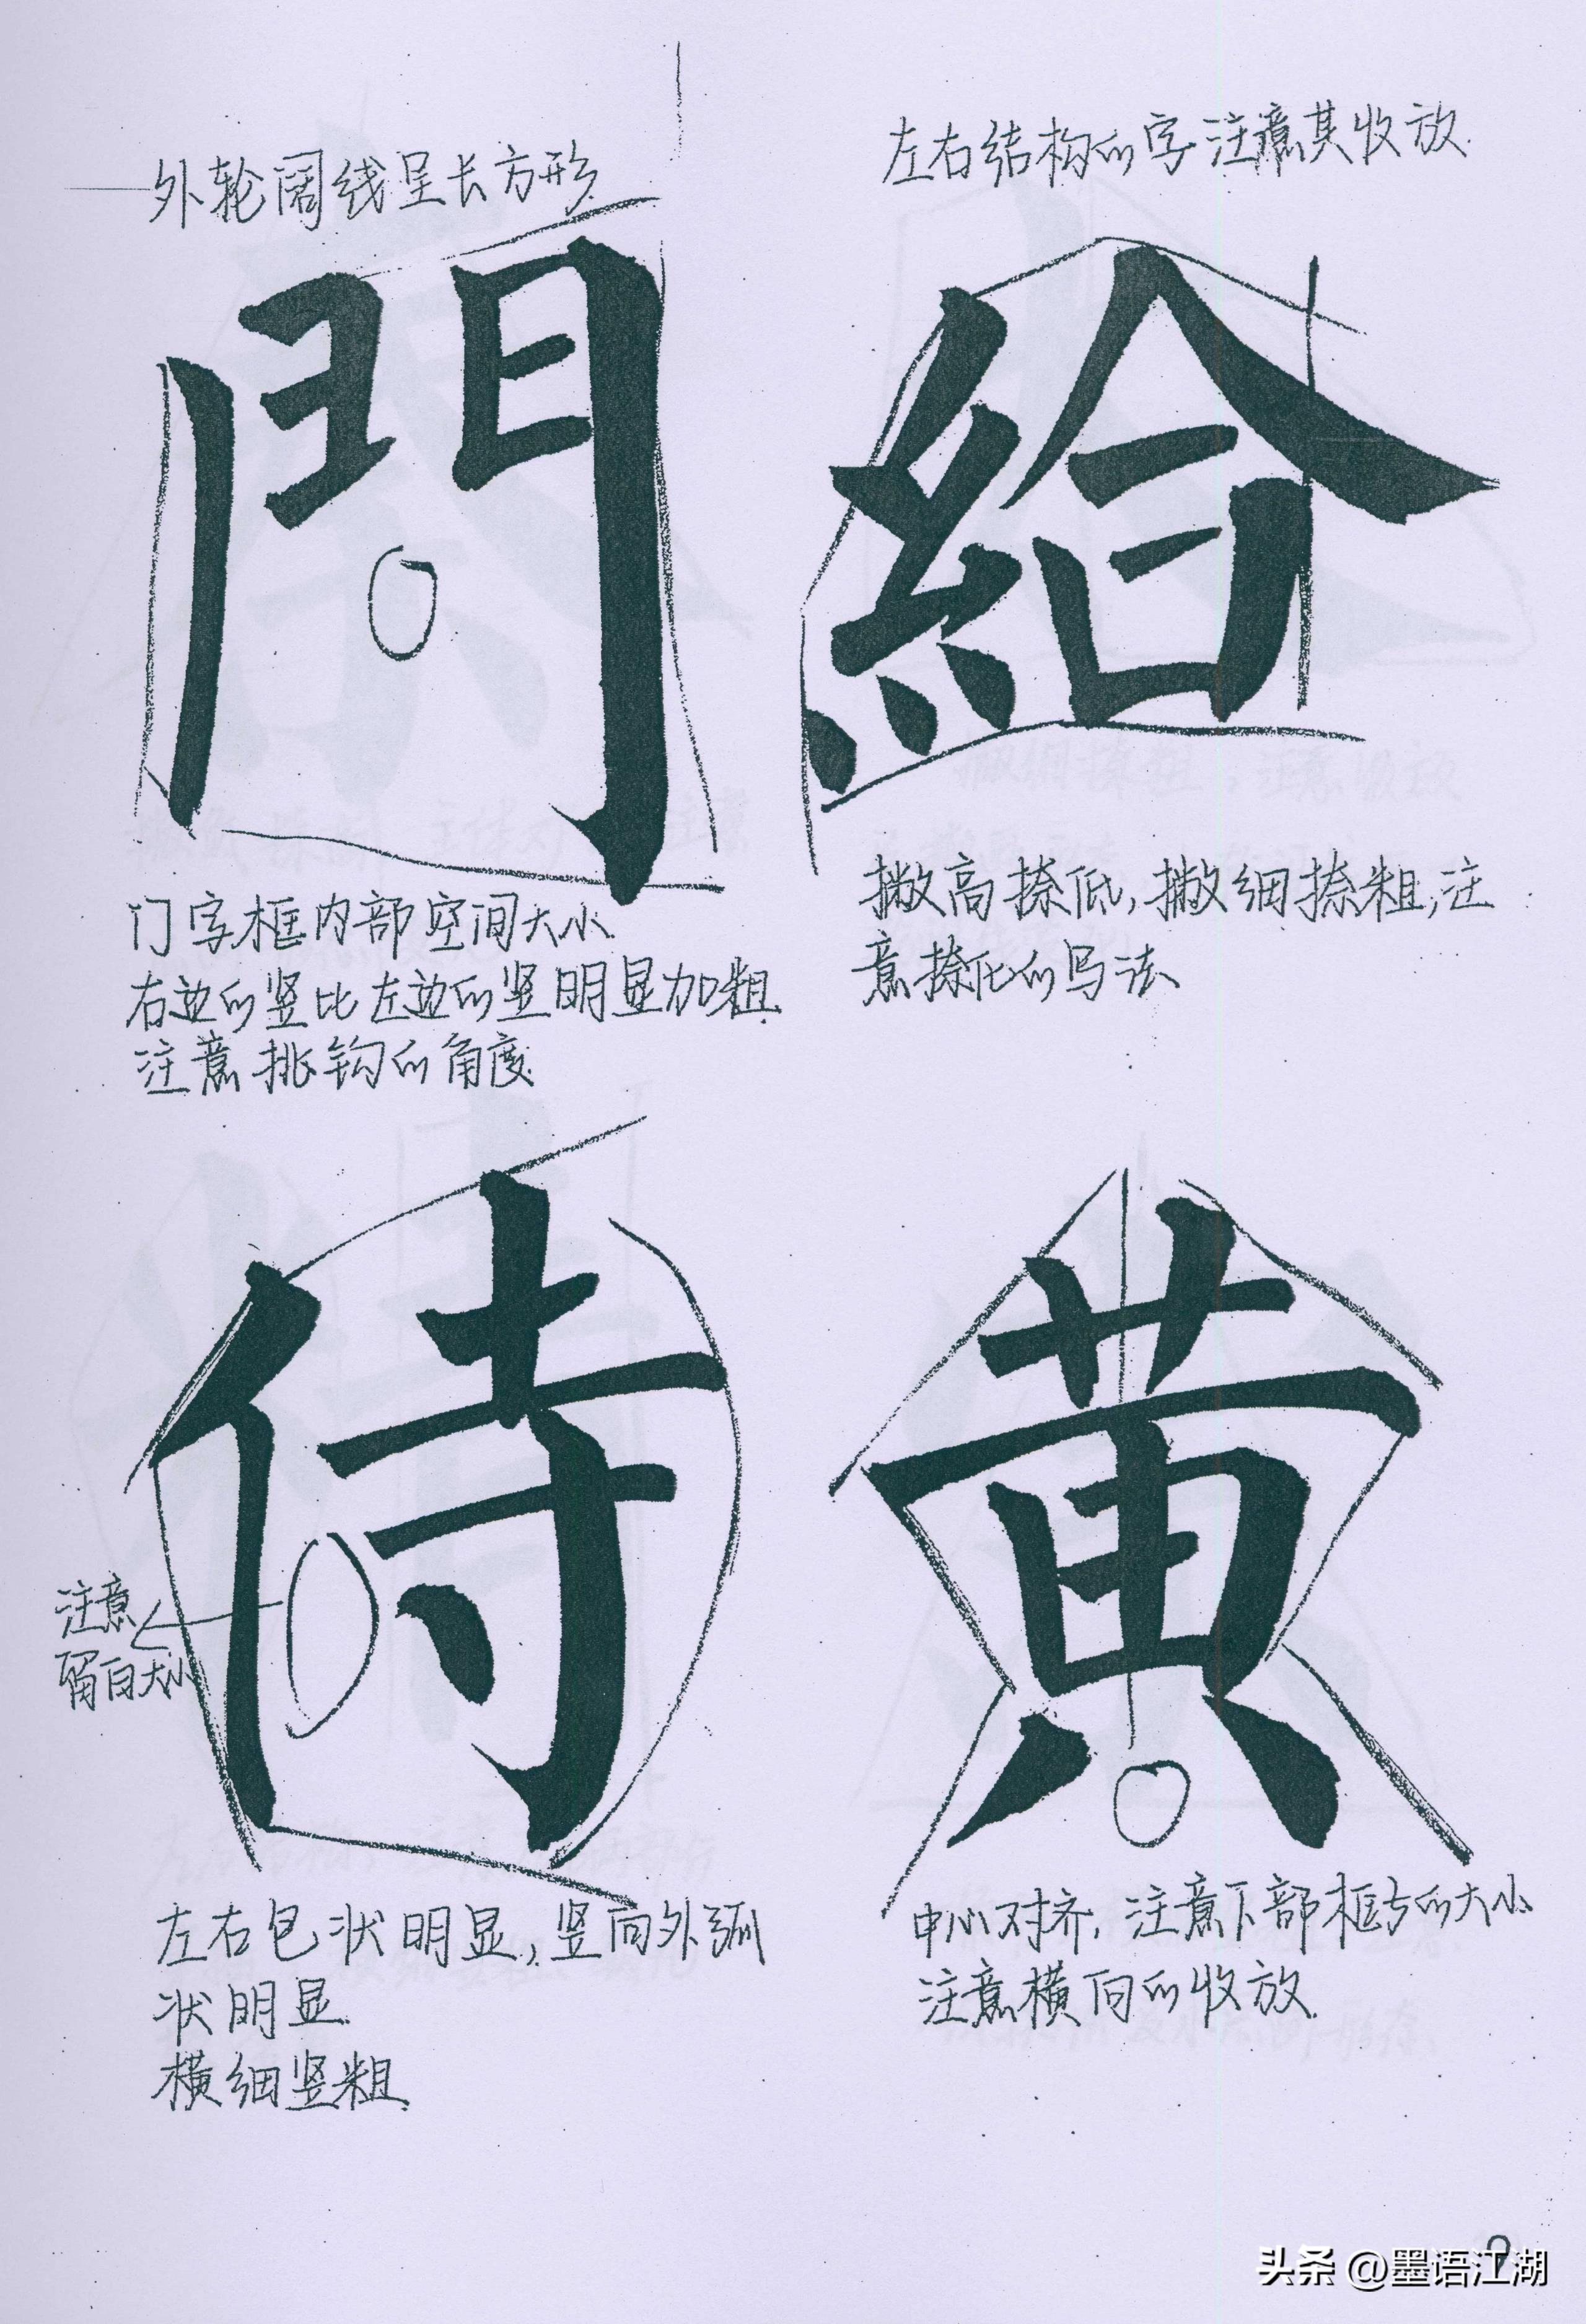 外轮阔线呈长方形
門
门字框内部空间大小
右边的竖比左边的竖明显加粗
注意挑钩的角度
左右结构的字注意其收放
給
撇高捺低,撇细捺粗,注
意捺化的写法
侍
注意
留白大小
左右包状明显,竖向外弧
状明显
横细竖粗
黄
中心对齐,注意下部框的大小
注意横向的收放
9
头条 @墨语江湖